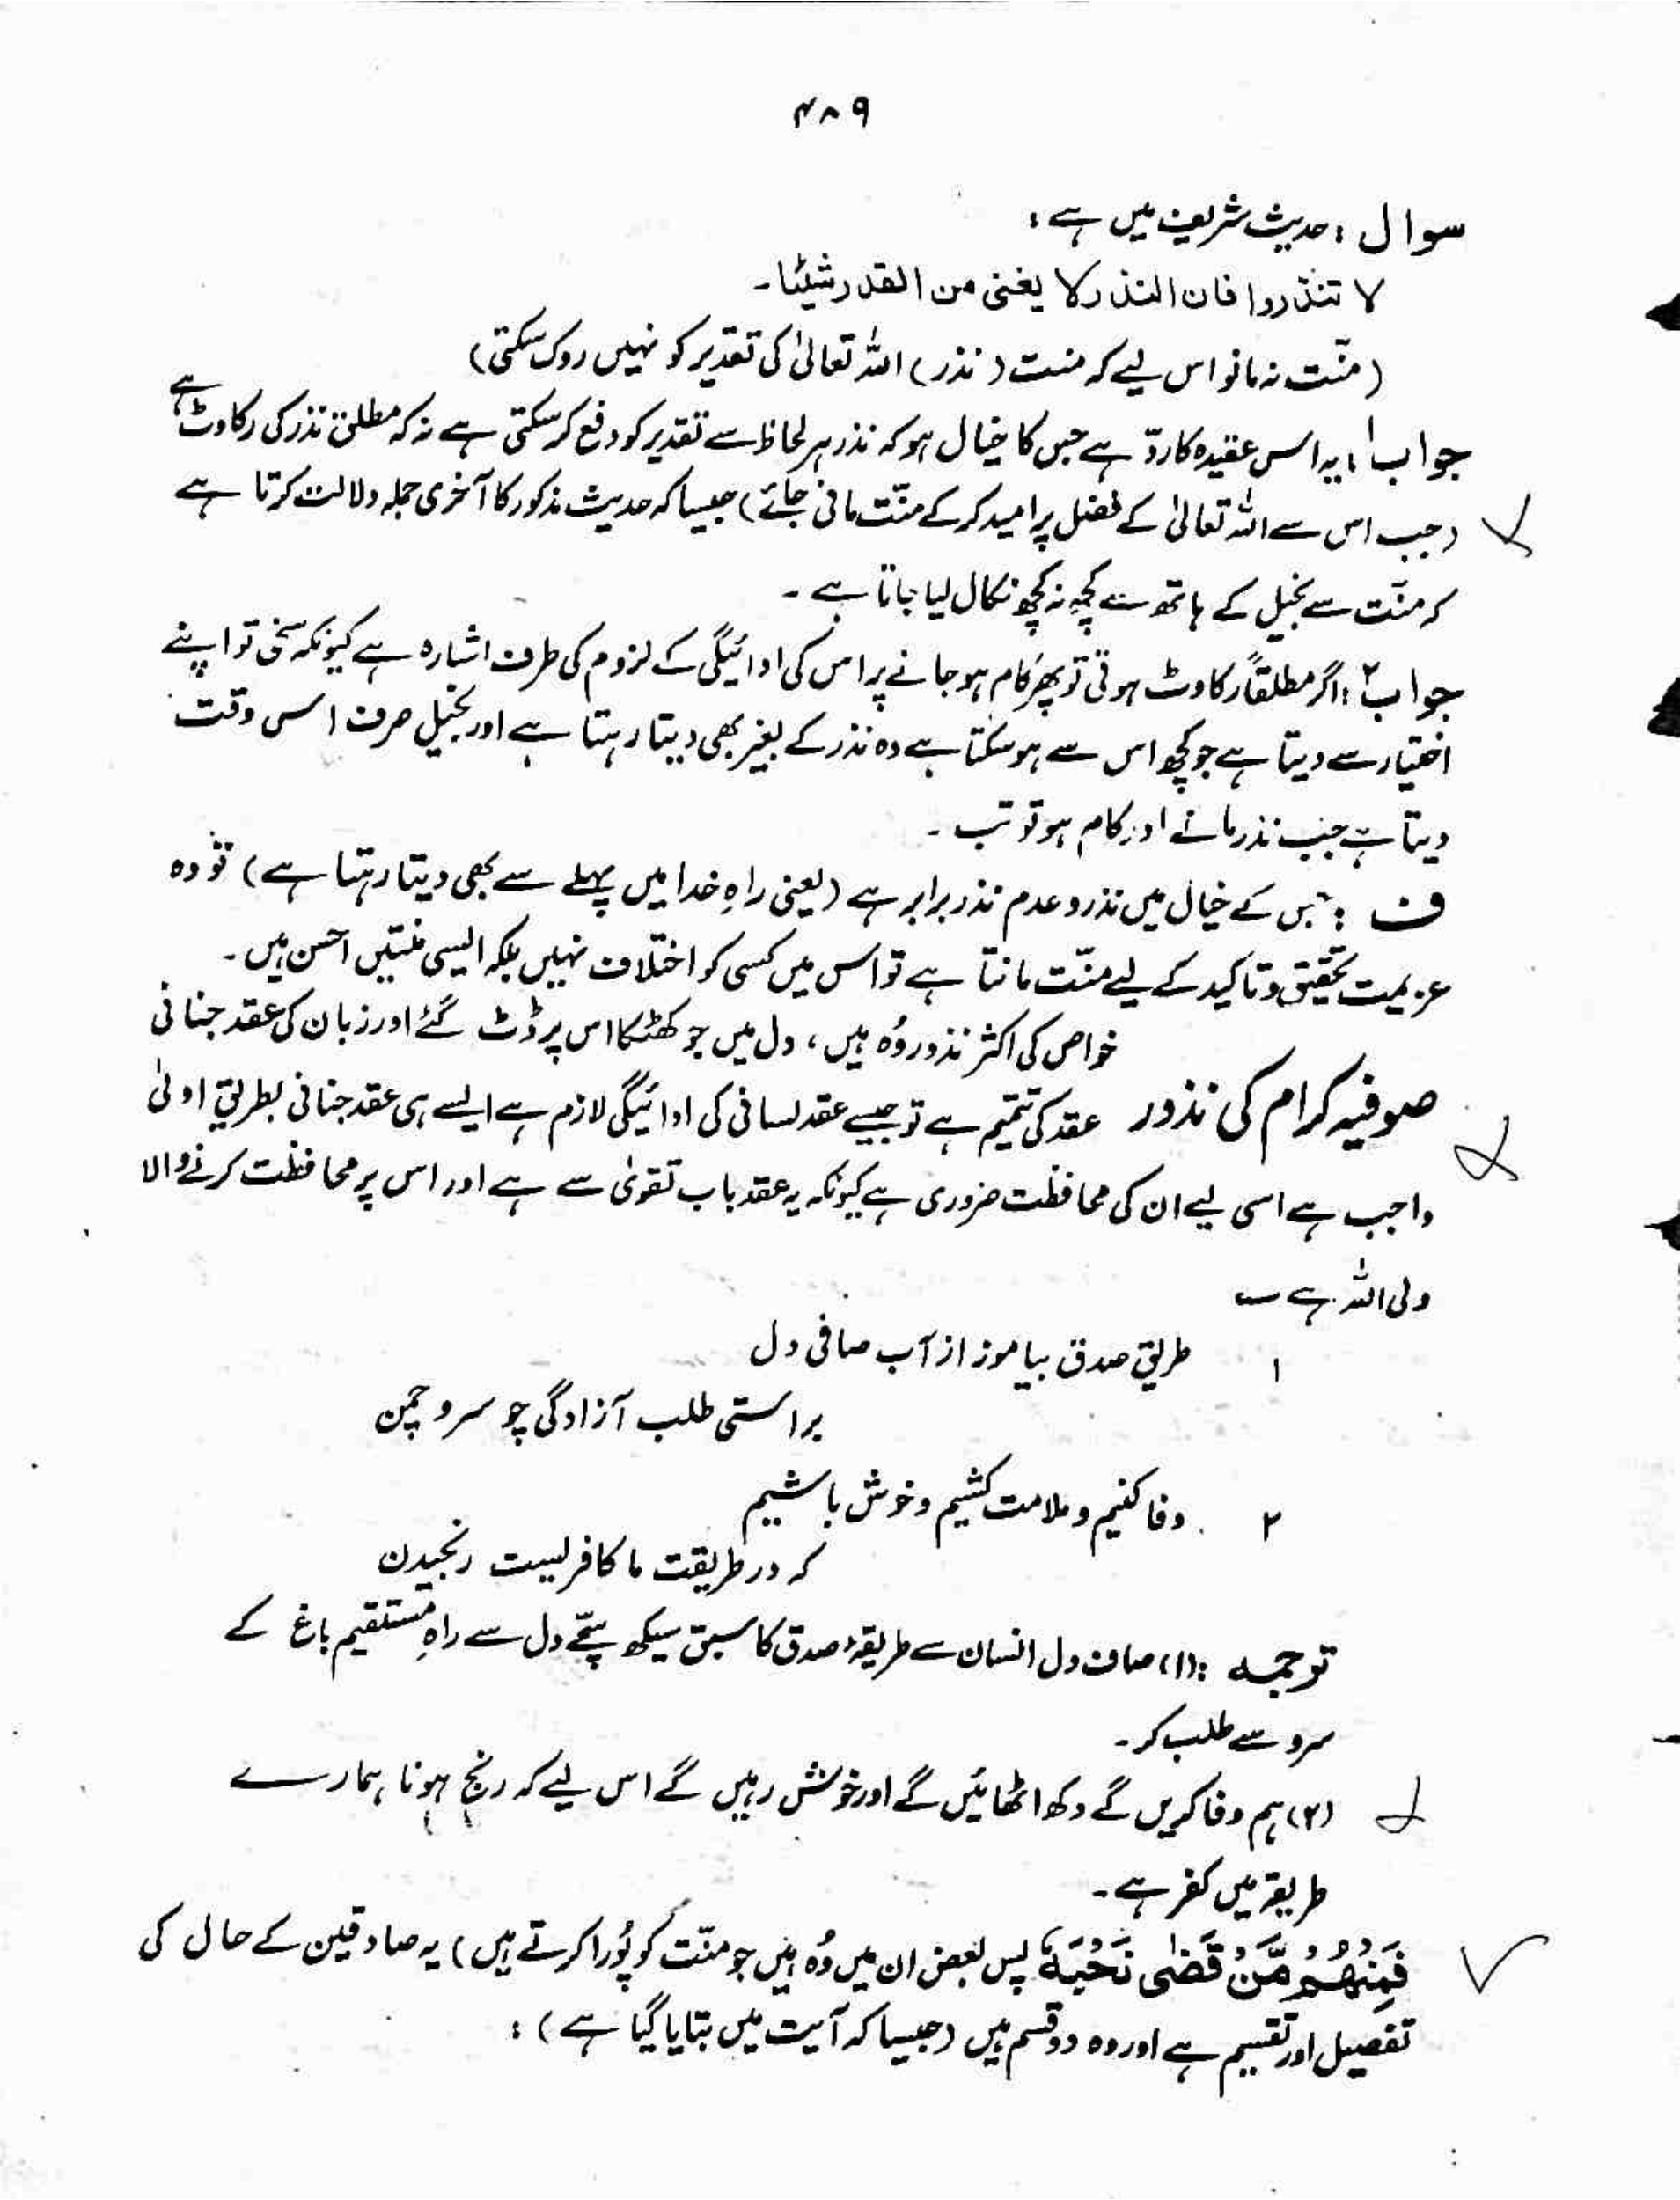 ۴۸۹
سوال : حدیث شریف میں ہے :
لا تنذروا فان النذر لا یغنی من القدر شیئا۔
(منّت نہ مانو اس لیے کہ منت (نذر) اللہ تعالیٰ کی تقدیر کو نہیں روک سکتی)
جواب ۱: یہ اس عقیدہ کا ردّ ہے جس کا خیال ہو کہ نذر ہر لحاظ سے تقدیر کو دفع کر سکتی ہے نہ کہ مطلق نذر کی رکاوٹ ہے
(جب اس سے اللہ تعالیٰ کے فضل پر امید کر کے منّت مانی جائے) جیسا کہ حدیث مذکور کا آخری جملہ دلالت کرتا ہے
کہ منّت سے بخیل کے ہاتھ سے کچھ نہ کچھ نکال لیا جاتا ہے۔
جواب ۲: اگر مطلقاً رکاوٹ ہوتی تو پھر کام ہو جانے پر اس کی ادائیگی کے لزوم کی طرف اشارہ ہے کیونکہ سخی تو اپنے
اختیار سے دیتا ہے جو کچھ اس سے ہو سکتا ہے وہ نذر کے بغیر بھی دیتا رہتا ہے اور بخیل صرف اس وقت
دیتا ہے جب نذر مانے اور کام ہو تو تب۔
ف : جس کے خیال میں نذر و عدم نذر برابر ہے (یعنی راہِ خدا میں پہلے سے بھی دیتا رہتا ہے) تو وہ
عزیمت تحقیق و تاکید کے لیے منّت مانتا ہے تو اس میں کسی کو اختلاف نہیں بلکہ ایسی منتیں احسن ہیں۔
خواص کی اکثر نذور وُہ ہیں، دل میں جو کھٹکا اس پر ڈٹ گئے اور زبان کی عقد جنانی
صوفیہ کرام کی نذور عقد کی تتمیم ہے تو جیسے عقد لسانی کی ادائیگی لازم ہے ایسے ہی عقد جنانی بطریق اولیٰ
واجب ہے اسی لیے ان کی محافظت ضروری ہے کیونکہ یہ عقد باب تقویٰ سے ہے اور اس پر محافظت کرنے والا
ولی اللہ ہے ؎
۱ طریق صدق بیاموز از آب صافی دل
براستی طلب آزادگی چو سرو چمن
۲ وفا کنیم و ملامت کشیم و خوش باشیم
کہ در طریقت ما کافریست رنجیدن
ترجمہ : (۱) صاف دل انسان سے طریقۂ صدق کا سبق سیکھ سچّے دل سے راہِ مستقیم باغ کے
سرو سے طلب کر۔
(۲) ہم وفا کریں گے دکھ اٹھائیں گے اور خوش رہیں گے اس لیے کہ رنج ہونا ہمارے
طریقہ میں کفر ہے۔
فَمِنْهُمْ مَّنْ قَضٰی نَحْبَهٗ پس بعض ان میں وُہ ہیں جو منّت کو پُورا کرتے ہیں) یہ صادقین کے حال کی
تفصیل اور تقسیم ہے اور وہ دو قسم ہیں (جیسا کہ آیت میں بتایا گیا ہے) :